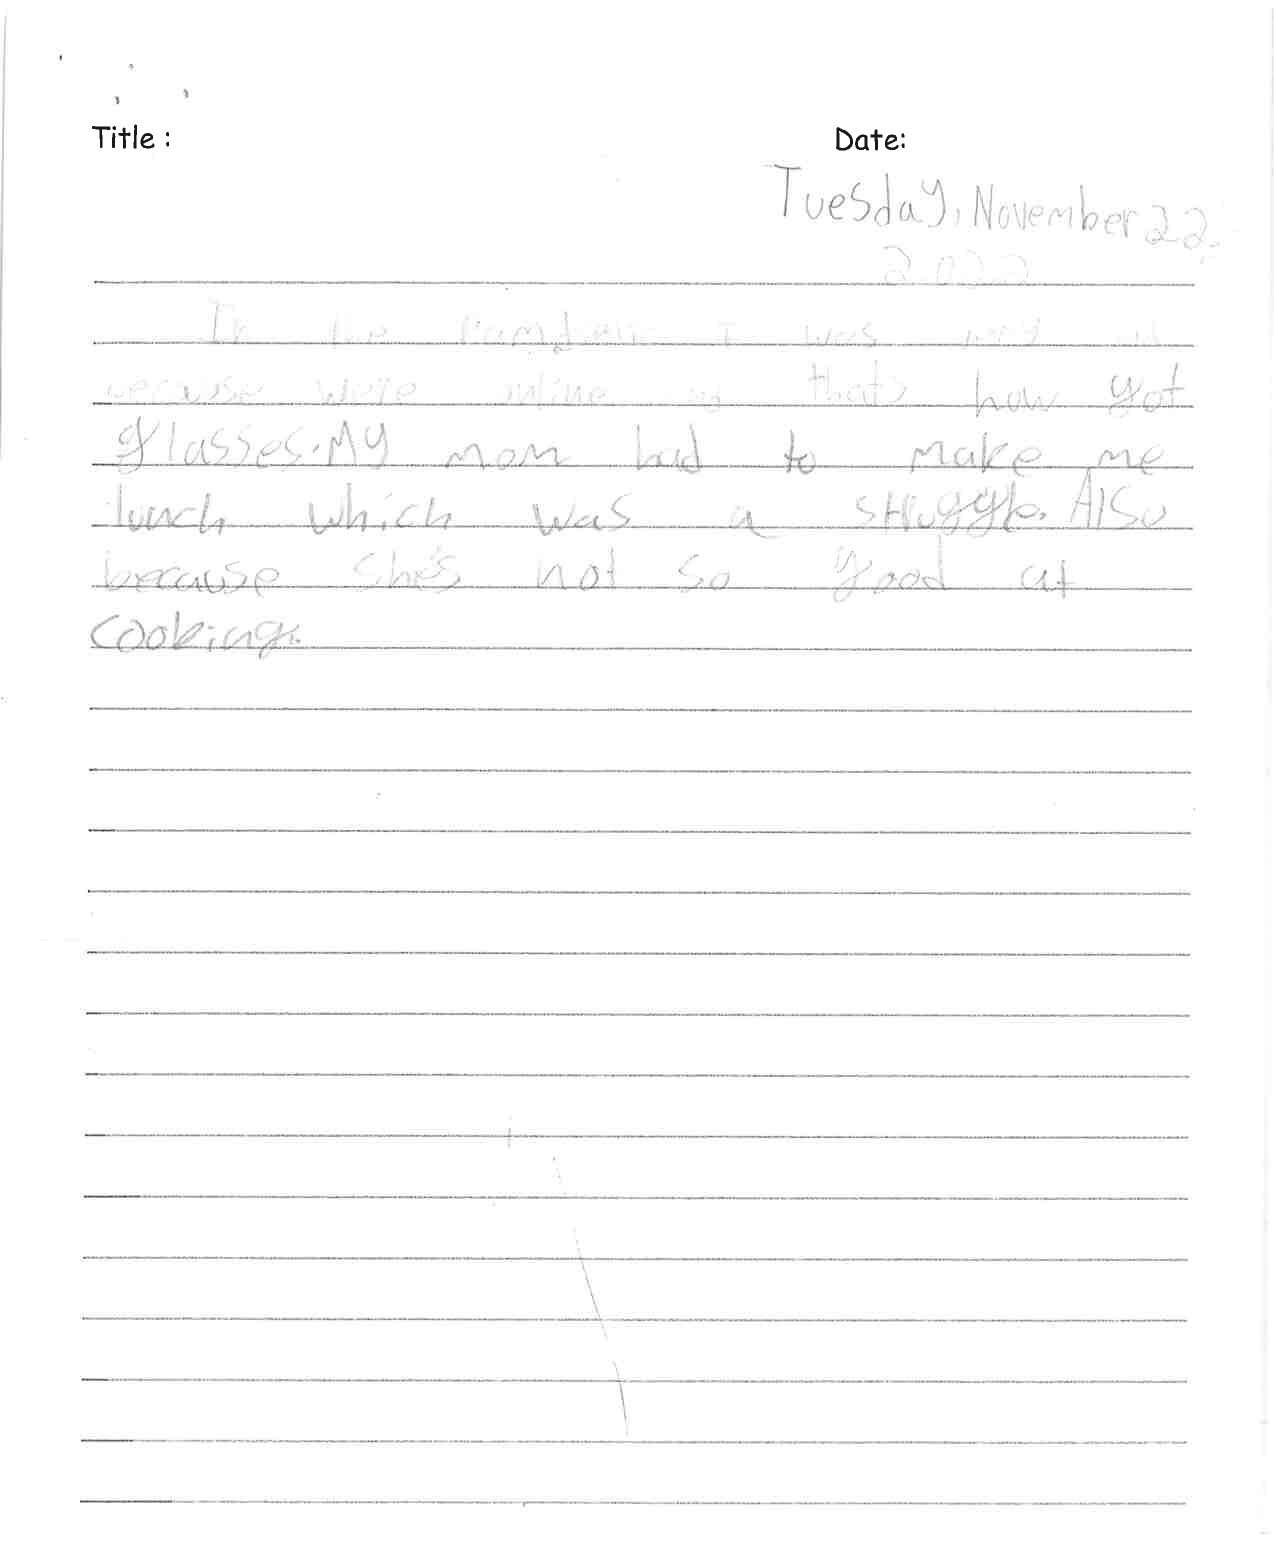 Title :
Date:
Tuesday, November 22,
2022
In the Pandemic I was very
because we're online thats how got
glasses. My mom had to make me
lunch which was a struggle. Also
because she's not so good at
cooking.